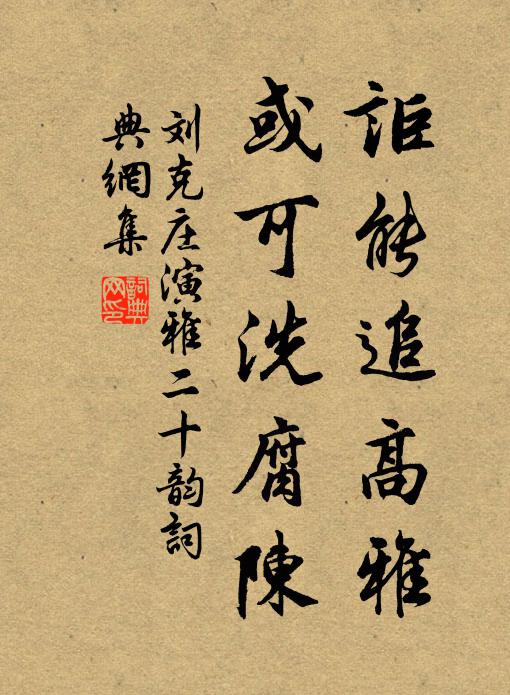 詎能追高雅
或可洗腐陳
刘克庄演雅二十韵詞
典網集
詞典
网印